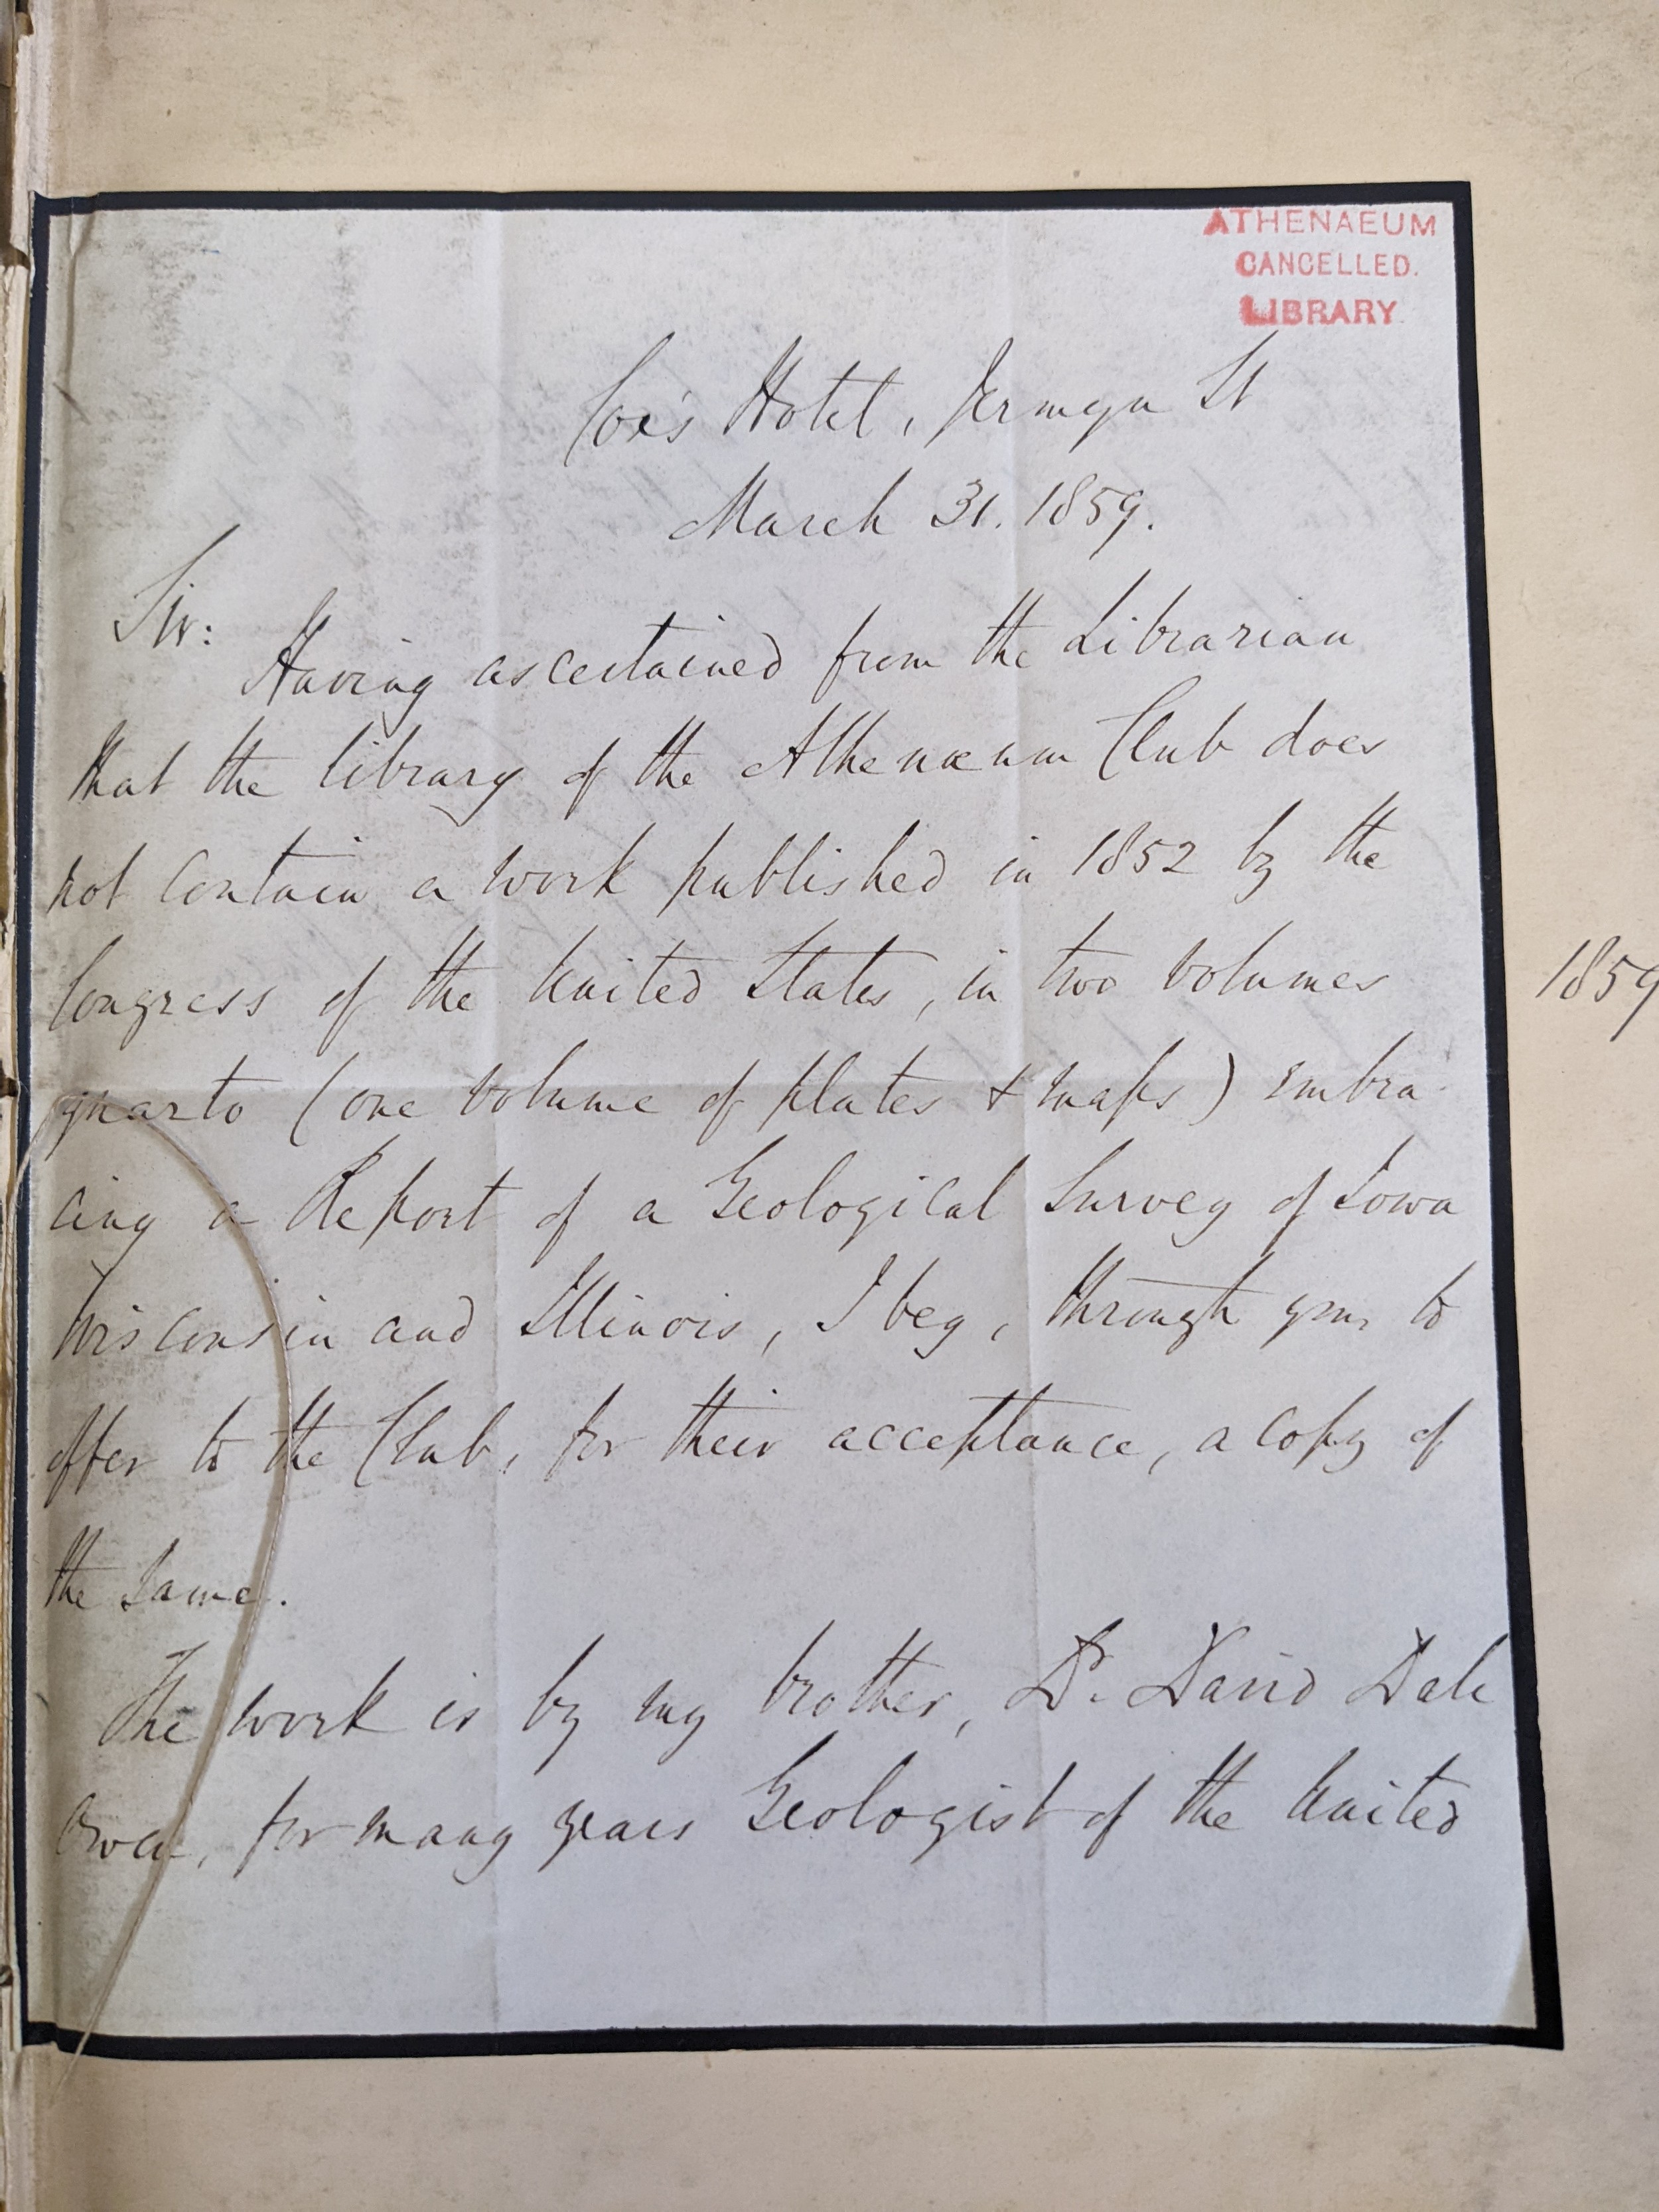 ATHENAEUM
CANCELLED.
LIBRARY
Cox's Hotel, Jermyn St
March 31. 1859.
Sir:
Having ascertained from the Librarian
that the library of the Athenæum Club does
not contain a work published in 1852 by the
Congress of the United States, in two volumes
quarto (one volume of plates & maps) embra-
cing a Report of a Geological Survey of Iowa
Wisconsin and Illinois, I beg, through you, to
offer to the Club, for their acceptance, a copy of
the same.
The work is by my brother, Dr. David Dale
Owen, for many years Geologist of the United
1859